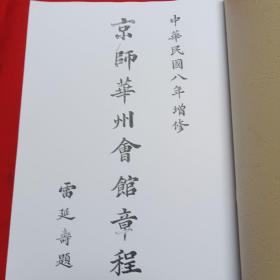 中華民國八年增修
京師華州會館章程
雷延壽題